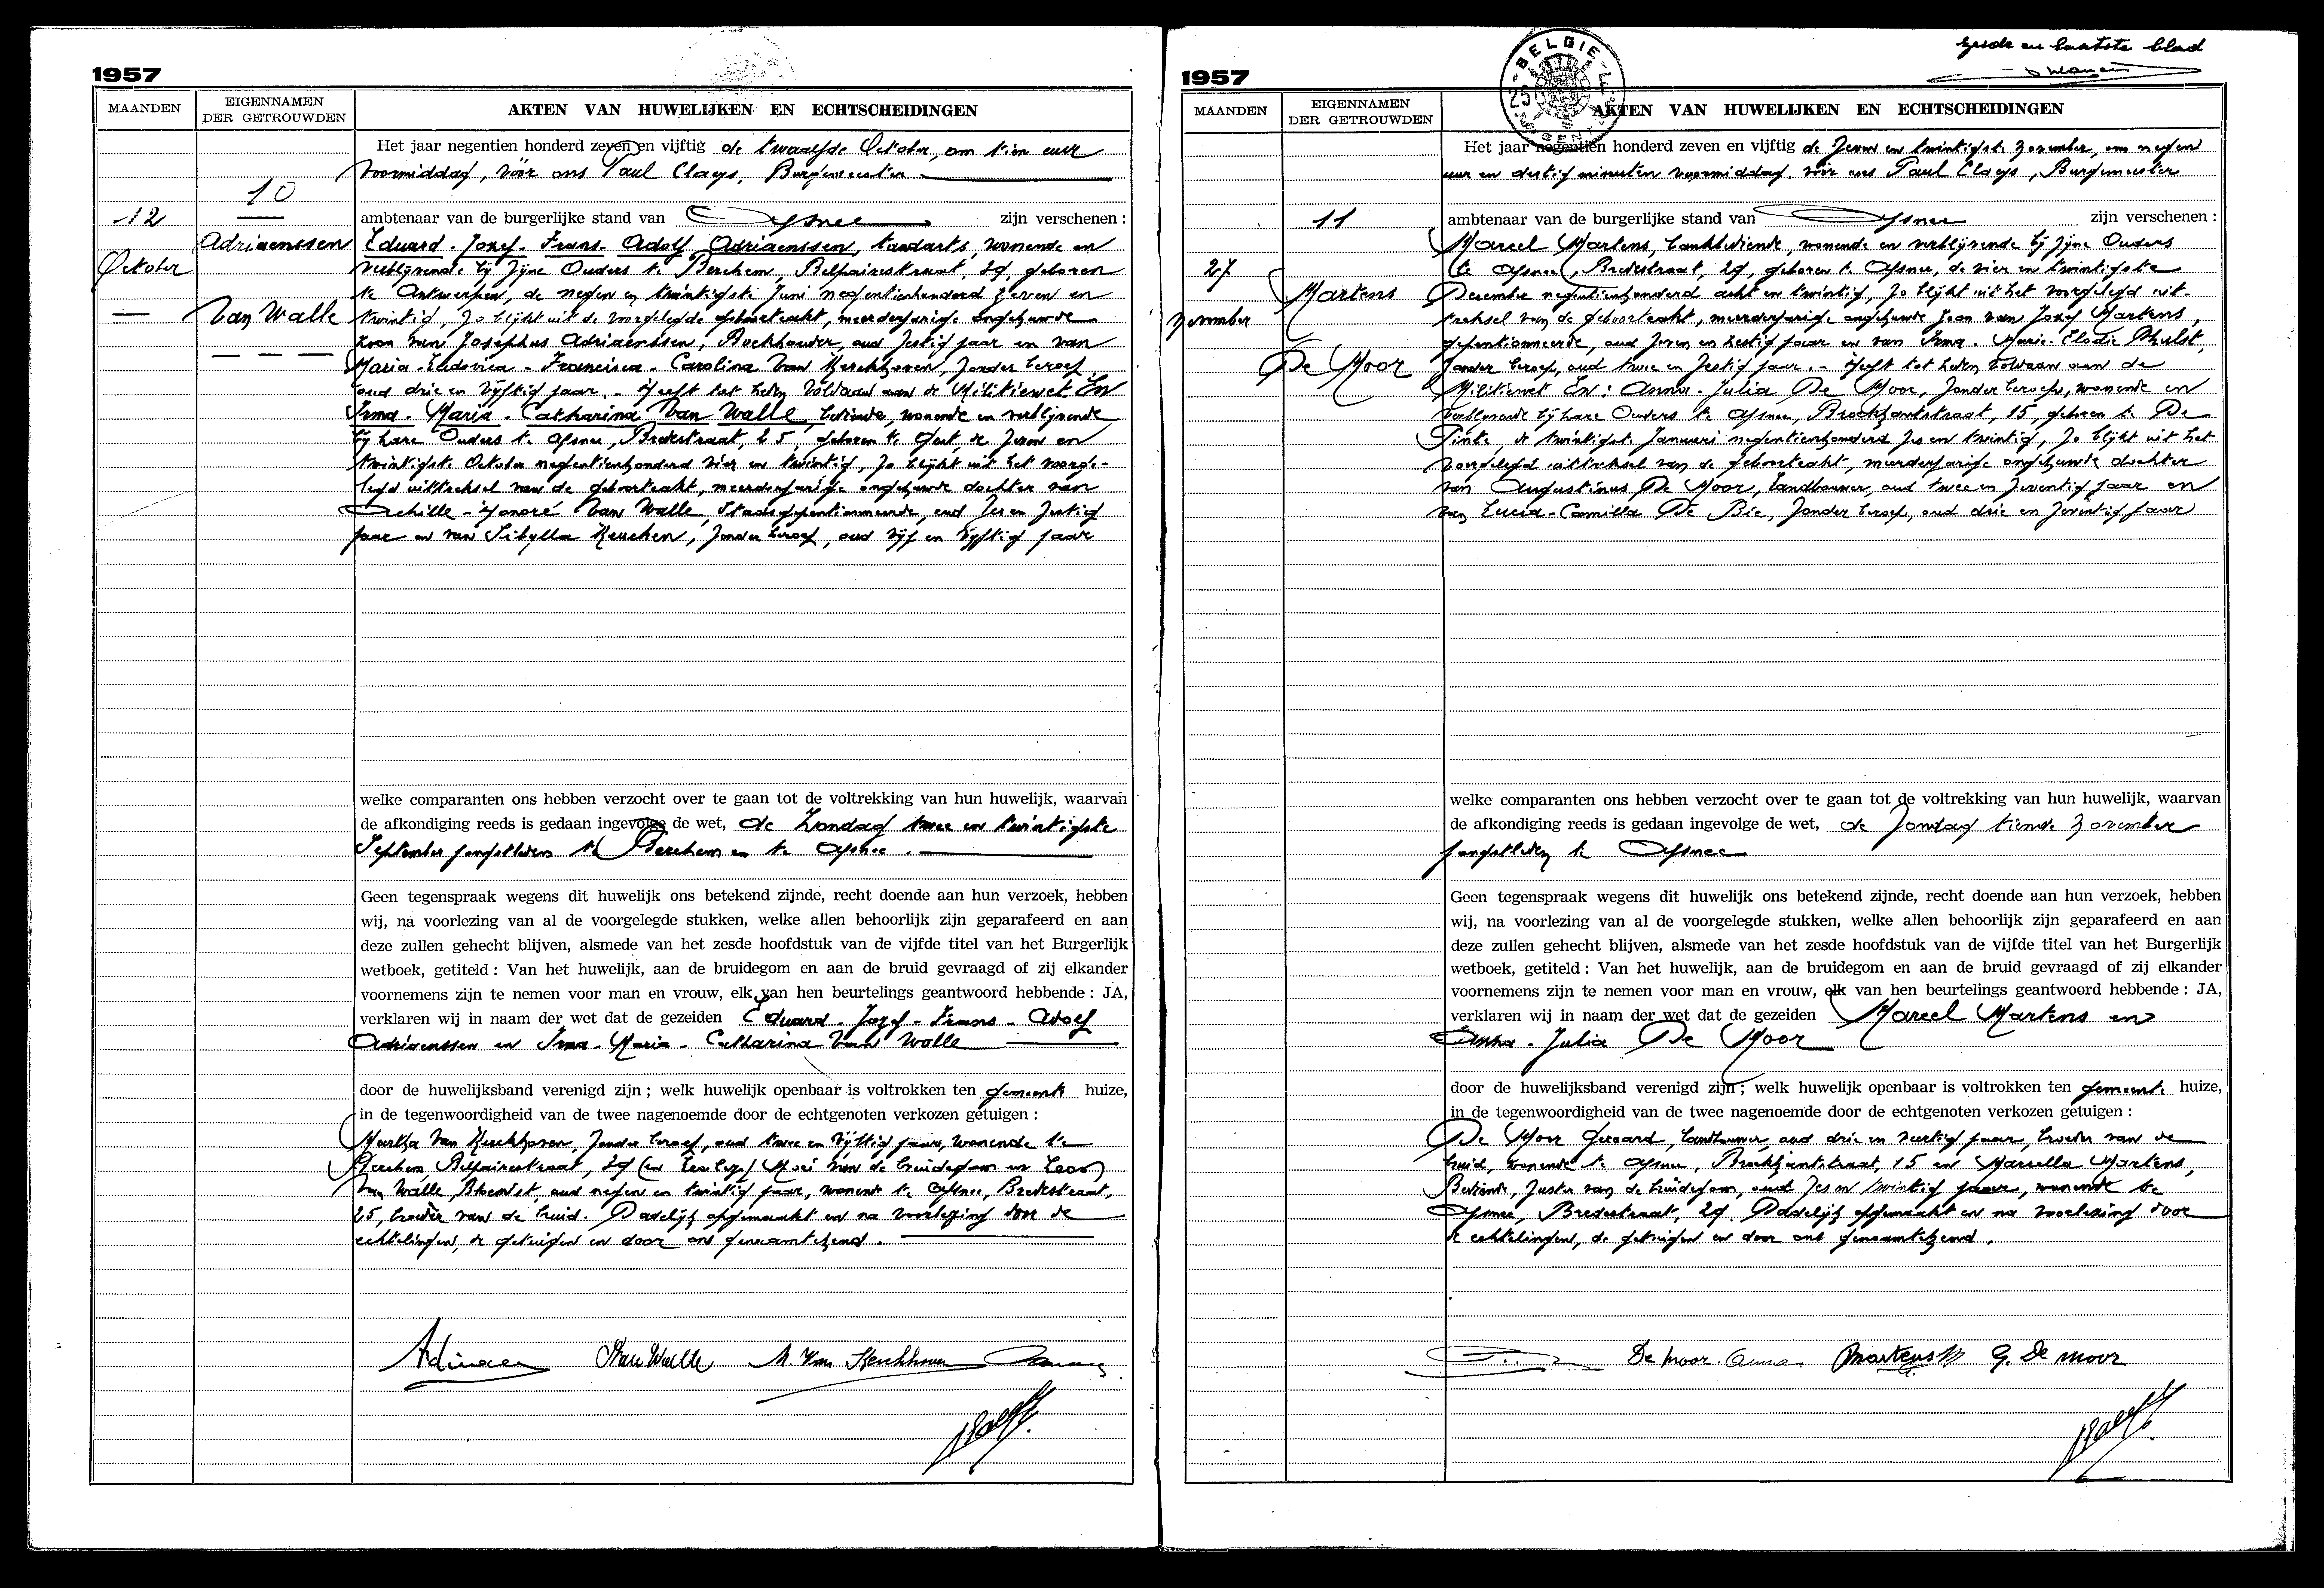 1957
MAANDEN
EIGENNAMEN
DER GETROUWDEN
AKTEN VAN HUWELIJKEN EN ECHTSCHEIDINGEN
10
-12
October
Adriaenssen
Van Walle
Het jaar negentien honderd zeven en vijftig de twaalfde October, om tien uur
voormiddag, vóór ons Paul Claeys, Burgemeester
ambtenaar van de burgerlijke stand van Afsnee zijn verschenen :
Eduard - Jozef - Frans - Adolf Adriaenssen, tandarts, wonende en
verblijvende bij zijne Ouders te Berchem, Belpairestraat, 29, geboren
te Antwerpen, de negen en twintigste Juni negentienhonderd zeven en
twintig, zo blijkt uit de voorgelegde geboorteakt, meerderjarige ongehuwde
zoon van Josephus Adriaenssen, Boekhouder, oud zestig jaar en van
Maria - Ludovica - Francisca - Carolina Van Kerckhoven, zonder beroep,
oud drie en vijftig jaar. - Heeft tot heden voldaan aan de Militiewet. En
Irma - Maria - Catharina Van Walle, bediende, wonende en verblijvende
bij hare Ouders te Afsnee, Bredestraat, 25, geboren te Gent, de zeven en
twintigste October negentienhonderd vier en twintig, zo blijkt uit het voorge-
legd uittreksel van de geboorteakt, meerderjarige ongehuwde dochter van
Achille - Honoré Van Walle, Staatsgepentionneerde, oud zes en zestig
jaar en van Sibylla Keuchen, zonder beroep, oud vijf en vijftig jaar
welke comparanten ons hebben verzocht over te gaan tot de voltrekking van hun huwelijk, waarvan
de afkondiging reeds is gedaan ingevolge de wet, de Zondag twee en twintigste
September jongstleden te Berchem en te Afsnee.
Geen tegenspraak wegens dit huwelijk ons betekend zijnde, recht doende aan hun verzoek, hebben
wij, na voorlezing van al de voorgelegde stukken, welke allen behoorlijk zijn geparafeerd en aan
deze zullen gehecht blijven, alsmede van het zesde hoofdstuk van de vijfde titel van het Burgerlijk
wetboek, getiteld : Van het huwelijk, aan de bruidegom en aan de bruid gevraagd of zij elkander
voornemens zijn te nemen voor man en vrouw, elk van hen beurtelings geantwoord hebbende : JA,
verklaren wij in naam der wet dat de gezeiden Eduard - Jozef - Frans - Adolf
Adriaenssen en Irma - Maria - Catharina Van Walle
door de huwelijksband verenigd zijn ; welk huwelijk openbaar is voltrokken ten gemeente huize,
in de tegenwoordigheid van de twee nagenoemde door de echtgenoten verkozen getuigen :
Martha Van Kerckhoven, zonder beroep, oud twee en vijftig jaar, wonende te
Berchem, Belpairestraat, 29 Moei van de bruidegom en
Van Walle, oud negen en twintig jaar, wonende te Afsnee, Bredestraat,
25, broeder van de bruid. Dadelijk opgemaakt en na voorlezing door de
echtelingen, de getuigen en door ons genaamtekend.
Van Walle M. Van Kerckhoven
1957
BELGIE
25
Zesde en laatste blad
MAANDEN
EIGENNAMEN
DER GETROUWDEN
AKTEN VAN HUWELIJKEN EN ECHTSCHEIDINGEN
11
27
November
Martens
De Moor
Het jaar negentien honderd zeven en vijftig de zeven en twintigste November, om negen
uur en dertig minuten voormiddag, vóór ons Paul Claeys, Burgemeester
ambtenaar van de burgerlijke stand van Afsnee zijn verschenen :
Marcel Martens, bankbediende, wonende en verblijvende bij zijne Ouders
te Afsnee, Bredestraat, 29, geboren te Afsnee, de vier en twintigste
December negentienhonderd acht en twintig, zo blijkt uit het voorgelegd uit-
treksel van de geboorteakt, meerderjarige ongehuwde zoon van Jozef Martens,
gepentionneerde, oud zeven en zestig jaar en van Irma - Marie - Elodie Phulst,
zonder beroep, oud twee en zestig jaar. - Heeft tot heden voldaan aan de
Militiewet. En : Anna - Julia De Moor, zonder beroep, wonende en
verblijvende bij hare Ouders te Afsnee, Broekkantstraat, 15, geboren te De
Pinte, de twintigste Januari negentienhonderd zes en twintig, zo blijkt uit het
voorgelegd uittreksel van de geboorteakt, meerderjarige ongehuwde dochter
van Augustinus De Moor, landbouwer, oud twee en zeventig jaar en
van Lucia - Camilla De Bie, zonder beroep, oud drie en zeventig jaar
welke comparanten ons hebben verzocht over te gaan tot de voltrekking van hun huwelijk, waarvan
de afkondiging reeds is gedaan ingevolge de wet, de Zondag tiende November
jongstleden te Afsnee
Geen tegenspraak wegens dit huwelijk ons betekend zijnde, recht doende aan hun verzoek, hebben
wij, na voorlezing van al de voorgelegde stukken, welke allen behoorlijk zijn geparafeerd en aan
deze zullen gehecht blijven, alsmede van het zesde hoofdstuk van de vijfde titel van het Burgerlijk
wetboek, getiteld : Van het huwelijk, aan de bruidegom en aan de bruid gevraagd of zij elkander
voornemens zijn te nemen voor man en vrouw, elk van hen beurtelings geantwoord hebbende : JA,
verklaren wij in naam der wet dat de gezeiden Marcel Martens en
Anna - Julia De Moor
door de huwelijksband verenigd zijn ; welk huwelijk openbaar is voltrokken ten gemeente huize,
in de tegenwoordigheid van de twee nagenoemde door de echtgenoten verkozen getuigen :
De Moor Geraard, landbouwer, oud drie en veertig jaar, broeder van de
bruid, wonende te Afsnee, Broekkantstraat, 15 en Marcella Martens,
Bediende, zuster van de bruidegom, oud zes en twintig jaar, wonende te
Afsnee, Bredestraat, 29. Dadelijk opgemaakt en na voorlezing door
de echtelingen, de getuigen en door ons genaamtekend.
De Moor Anna. Martens M G. De Moor